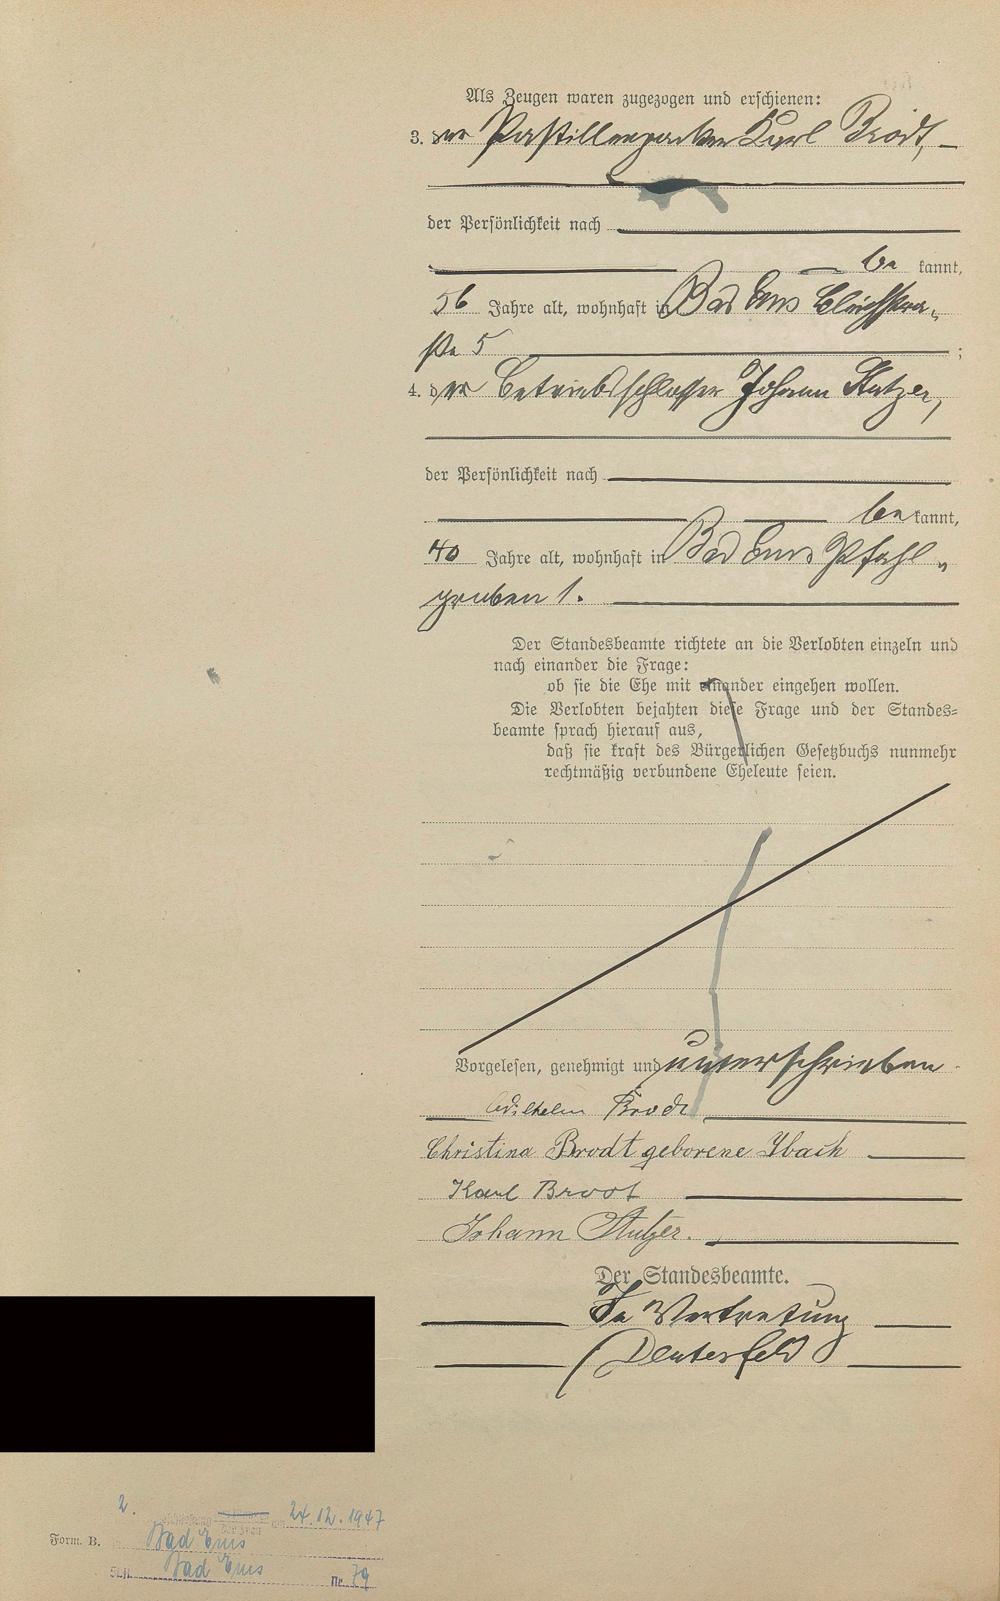 Als Zeugen waren zugezogen und erschienen:
3. der Pastillenpacker Karl Brodt,
der Persönlichkeit nach
be kannt,
56 Jahre alt, wohnhaft in Bad Ems Bleichstra-
ße 5 ;
4. der Betriebsschlosser Johann Stutzer,
der Persönlichkeit nach
be kannt,
40 Jahre alt, wohnhaft in Bad Ems Pfahl-
graben 1.
Der Standesbeamte richtete an die Verlobten einzeln und
nach einander die Frage:
ob sie die Ehe mit einander eingehen wollen.
Die Verlobten bejahten diese Frage und der Standes-
beamte sprach hierauf aus,
daß sie kraft des Bürgerlichen Gesetzbuchs nunmehr
rechtmäßig verbundene Eheleute seien.
Vorgelesen, genehmigt und unterschrieben
Wilhelm Brodt
Christina Brodt geborene Ibach
Karl Brodt
Johann Stutzer.
Der Standesbeamte.
In Vertretung
2. 24.12.1947
Form. B. Bad Ems
Bad Ems Nr. 79